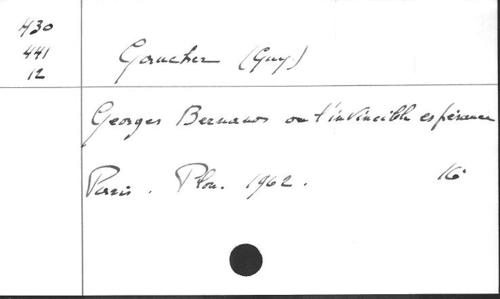 430
441
12
Gaucher (Guy)
Georges Bernanos ou l'invincible espérance
Paris. Plon. 1962. 16°